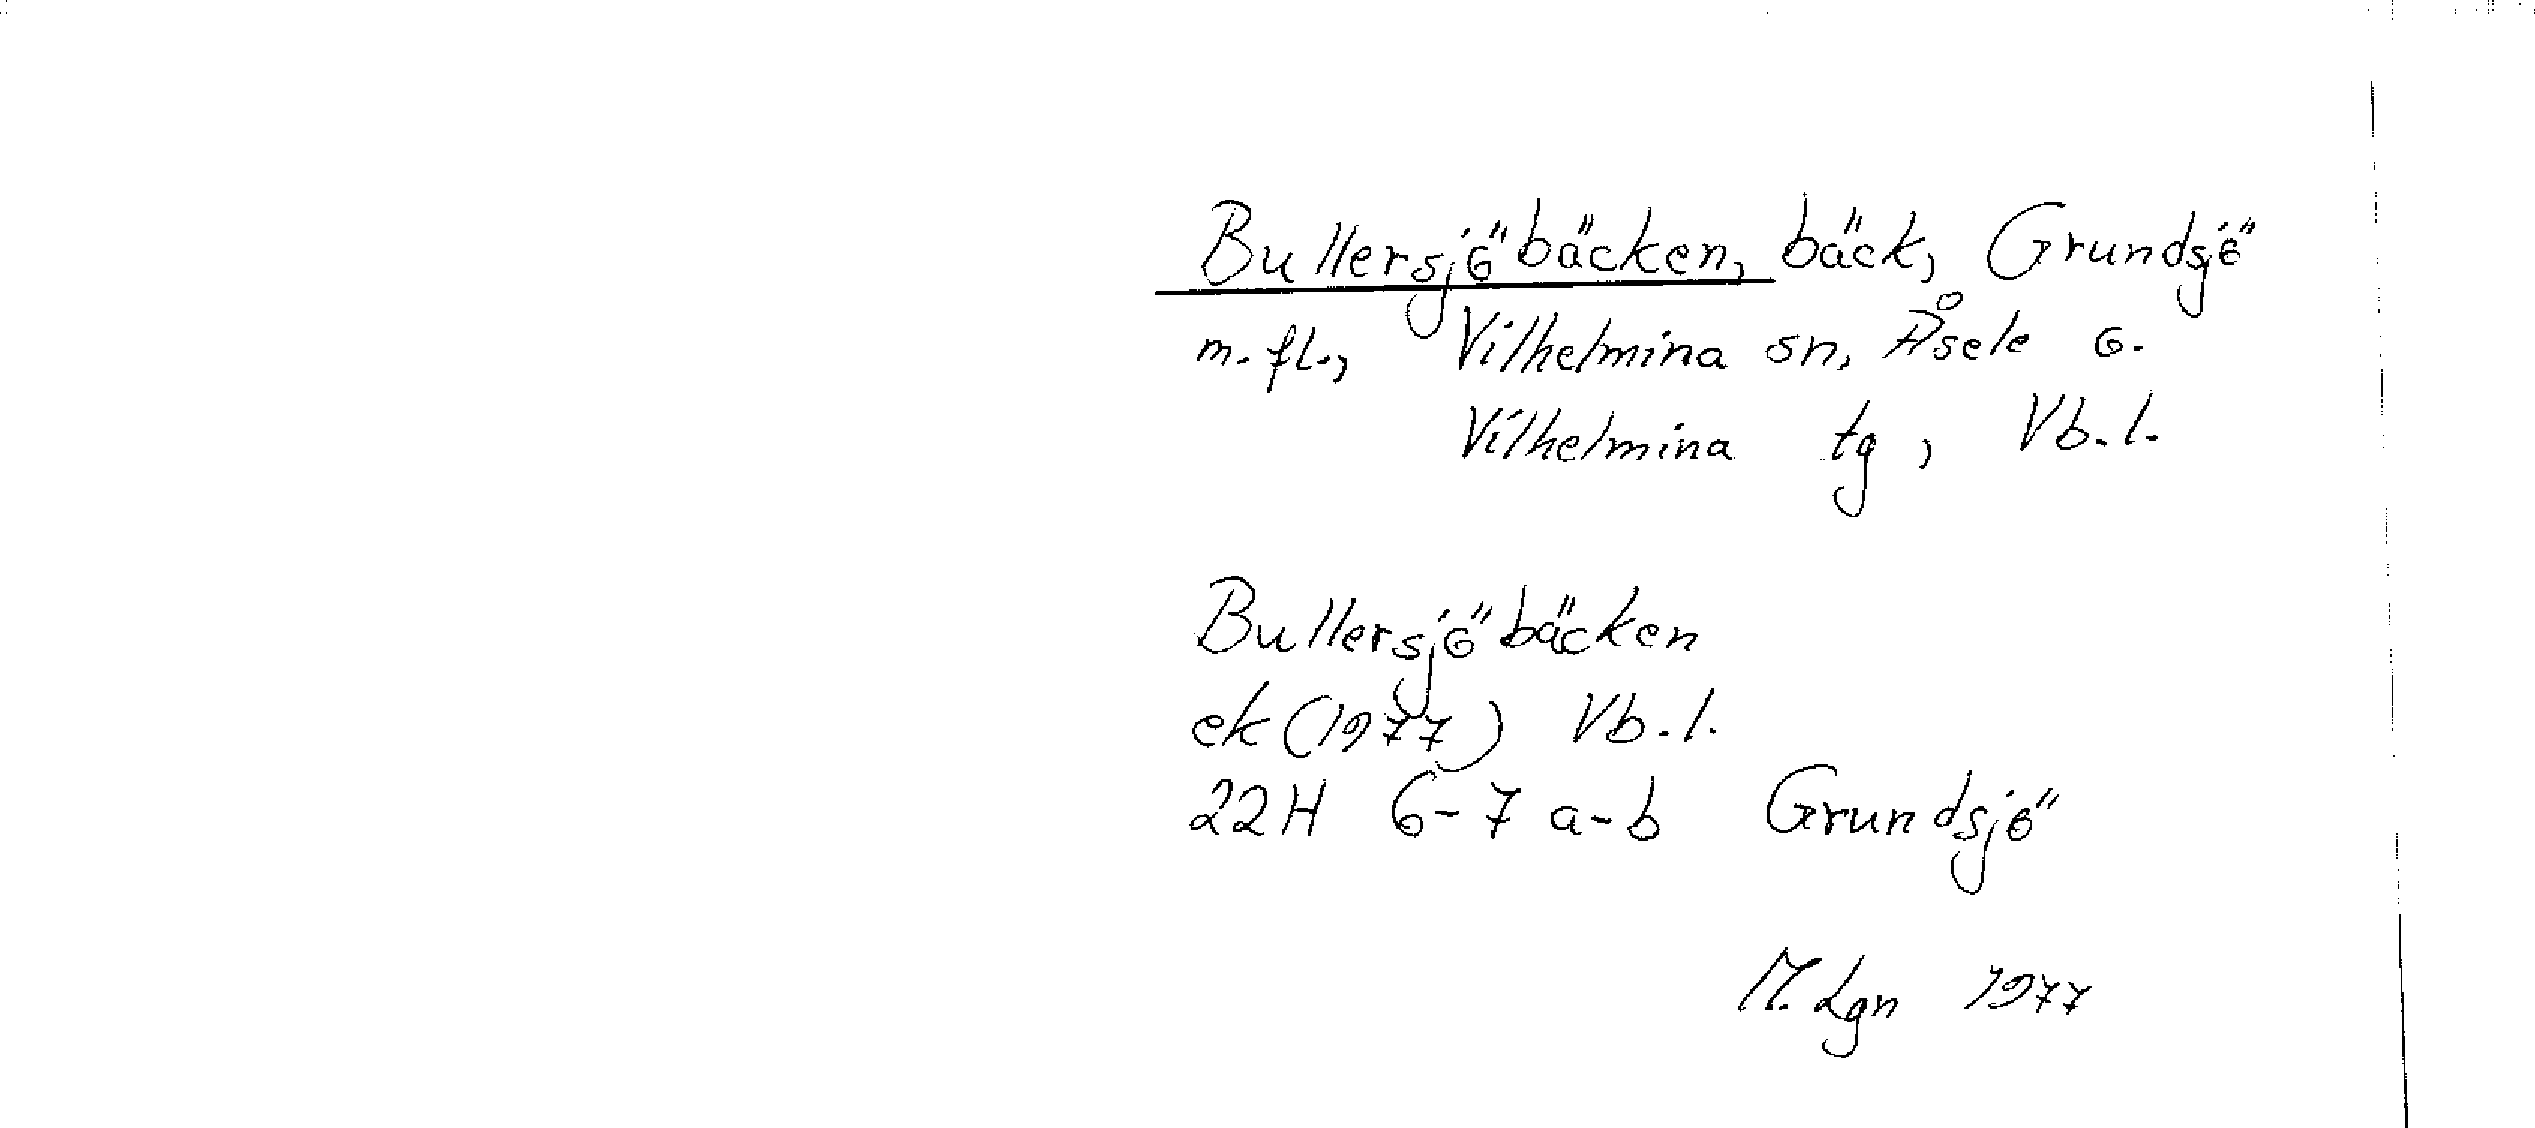 Bullersjöbäcken, bäck, Grundsjö
m. fl., Vilhelmina sn, Åsele o.
Vilhelmina tg, Vb. l.
Bullersjöbäcken
ek (1977) Vb. l.
22H 6-7 a-b Grundsjö
M. Lgn 1977